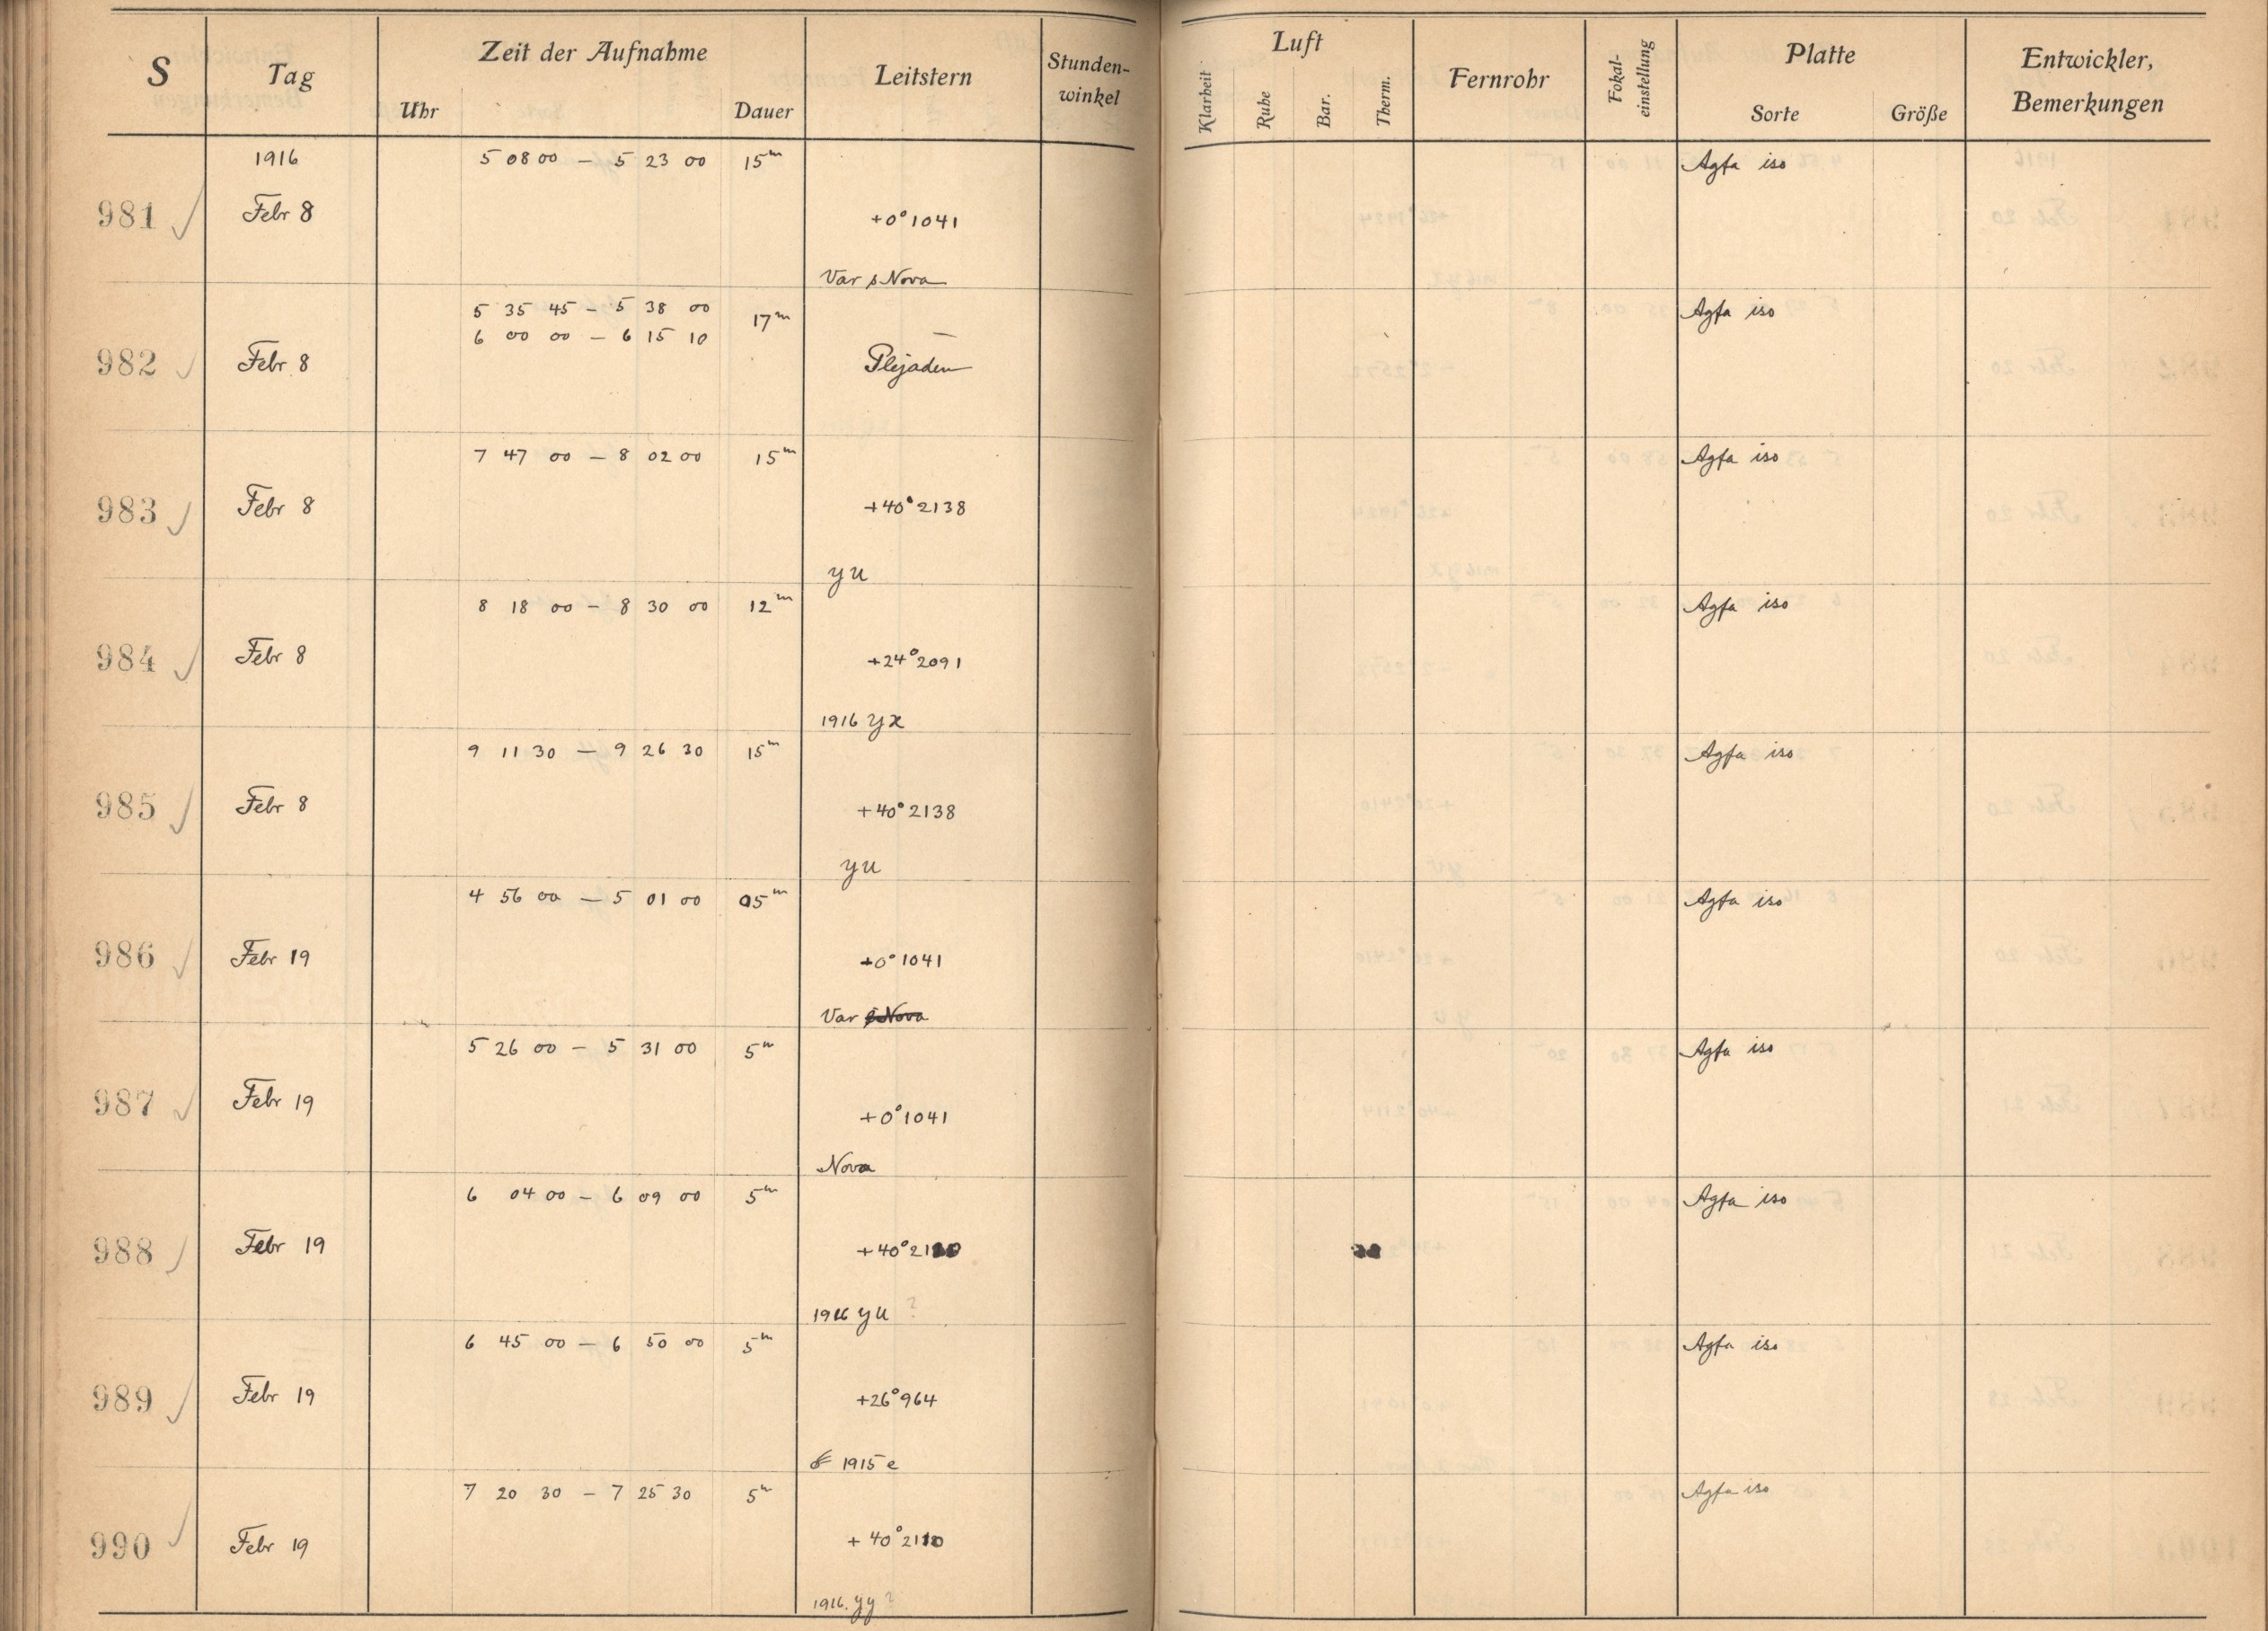 S Tag Zeit der Aufnahme Uhr Dauer Leitstern Stunden-winkel Luft Klarheit Ruhe Bar. Therm. Fernrohr Fokal-einstellung Platte Sorte Größe Entwickler, Bemerkungen
1916 5 08 00 — 5 23 00 15m Agfa iso
981 Febr 8 +0° 1041
Var s Nova
5 35 45 — 5 38 00 17m Agfa iso
6 00 00 — 6 15 10
982 Febr 8 Plejaden
7 47 00 — 8 02 00 15m Agfa iso
983 Febr 8 +40° 2138
yu
8 18 00 — 8 30 00 12m Agfa iso
984 Febr 8 +24° 2091
1916 yx
9 11 30 — 9 26 30 15m Agfa iso
985 Febr 8 +40° 2138
yu
4 56 00 — 5 01 00 05m Agfa iso
986 Febr 19 +0° 1041
Var s Nova
5 26 00 — 5 31 00 5m Agfa iso
987 Febr 19 +0° 1041
Nova
6 04 00 — 6 09 00 5m Agfa iso
988 Febr 19
1916 yu ?
6 45 00 — 6 50 00 5m Agfa iso
989 Febr 19 +26° 964
1915 e
7 20 30 — 7 25 30 5m Agfa iso
990 Febr 19 +40° 2110
1916. yy ?